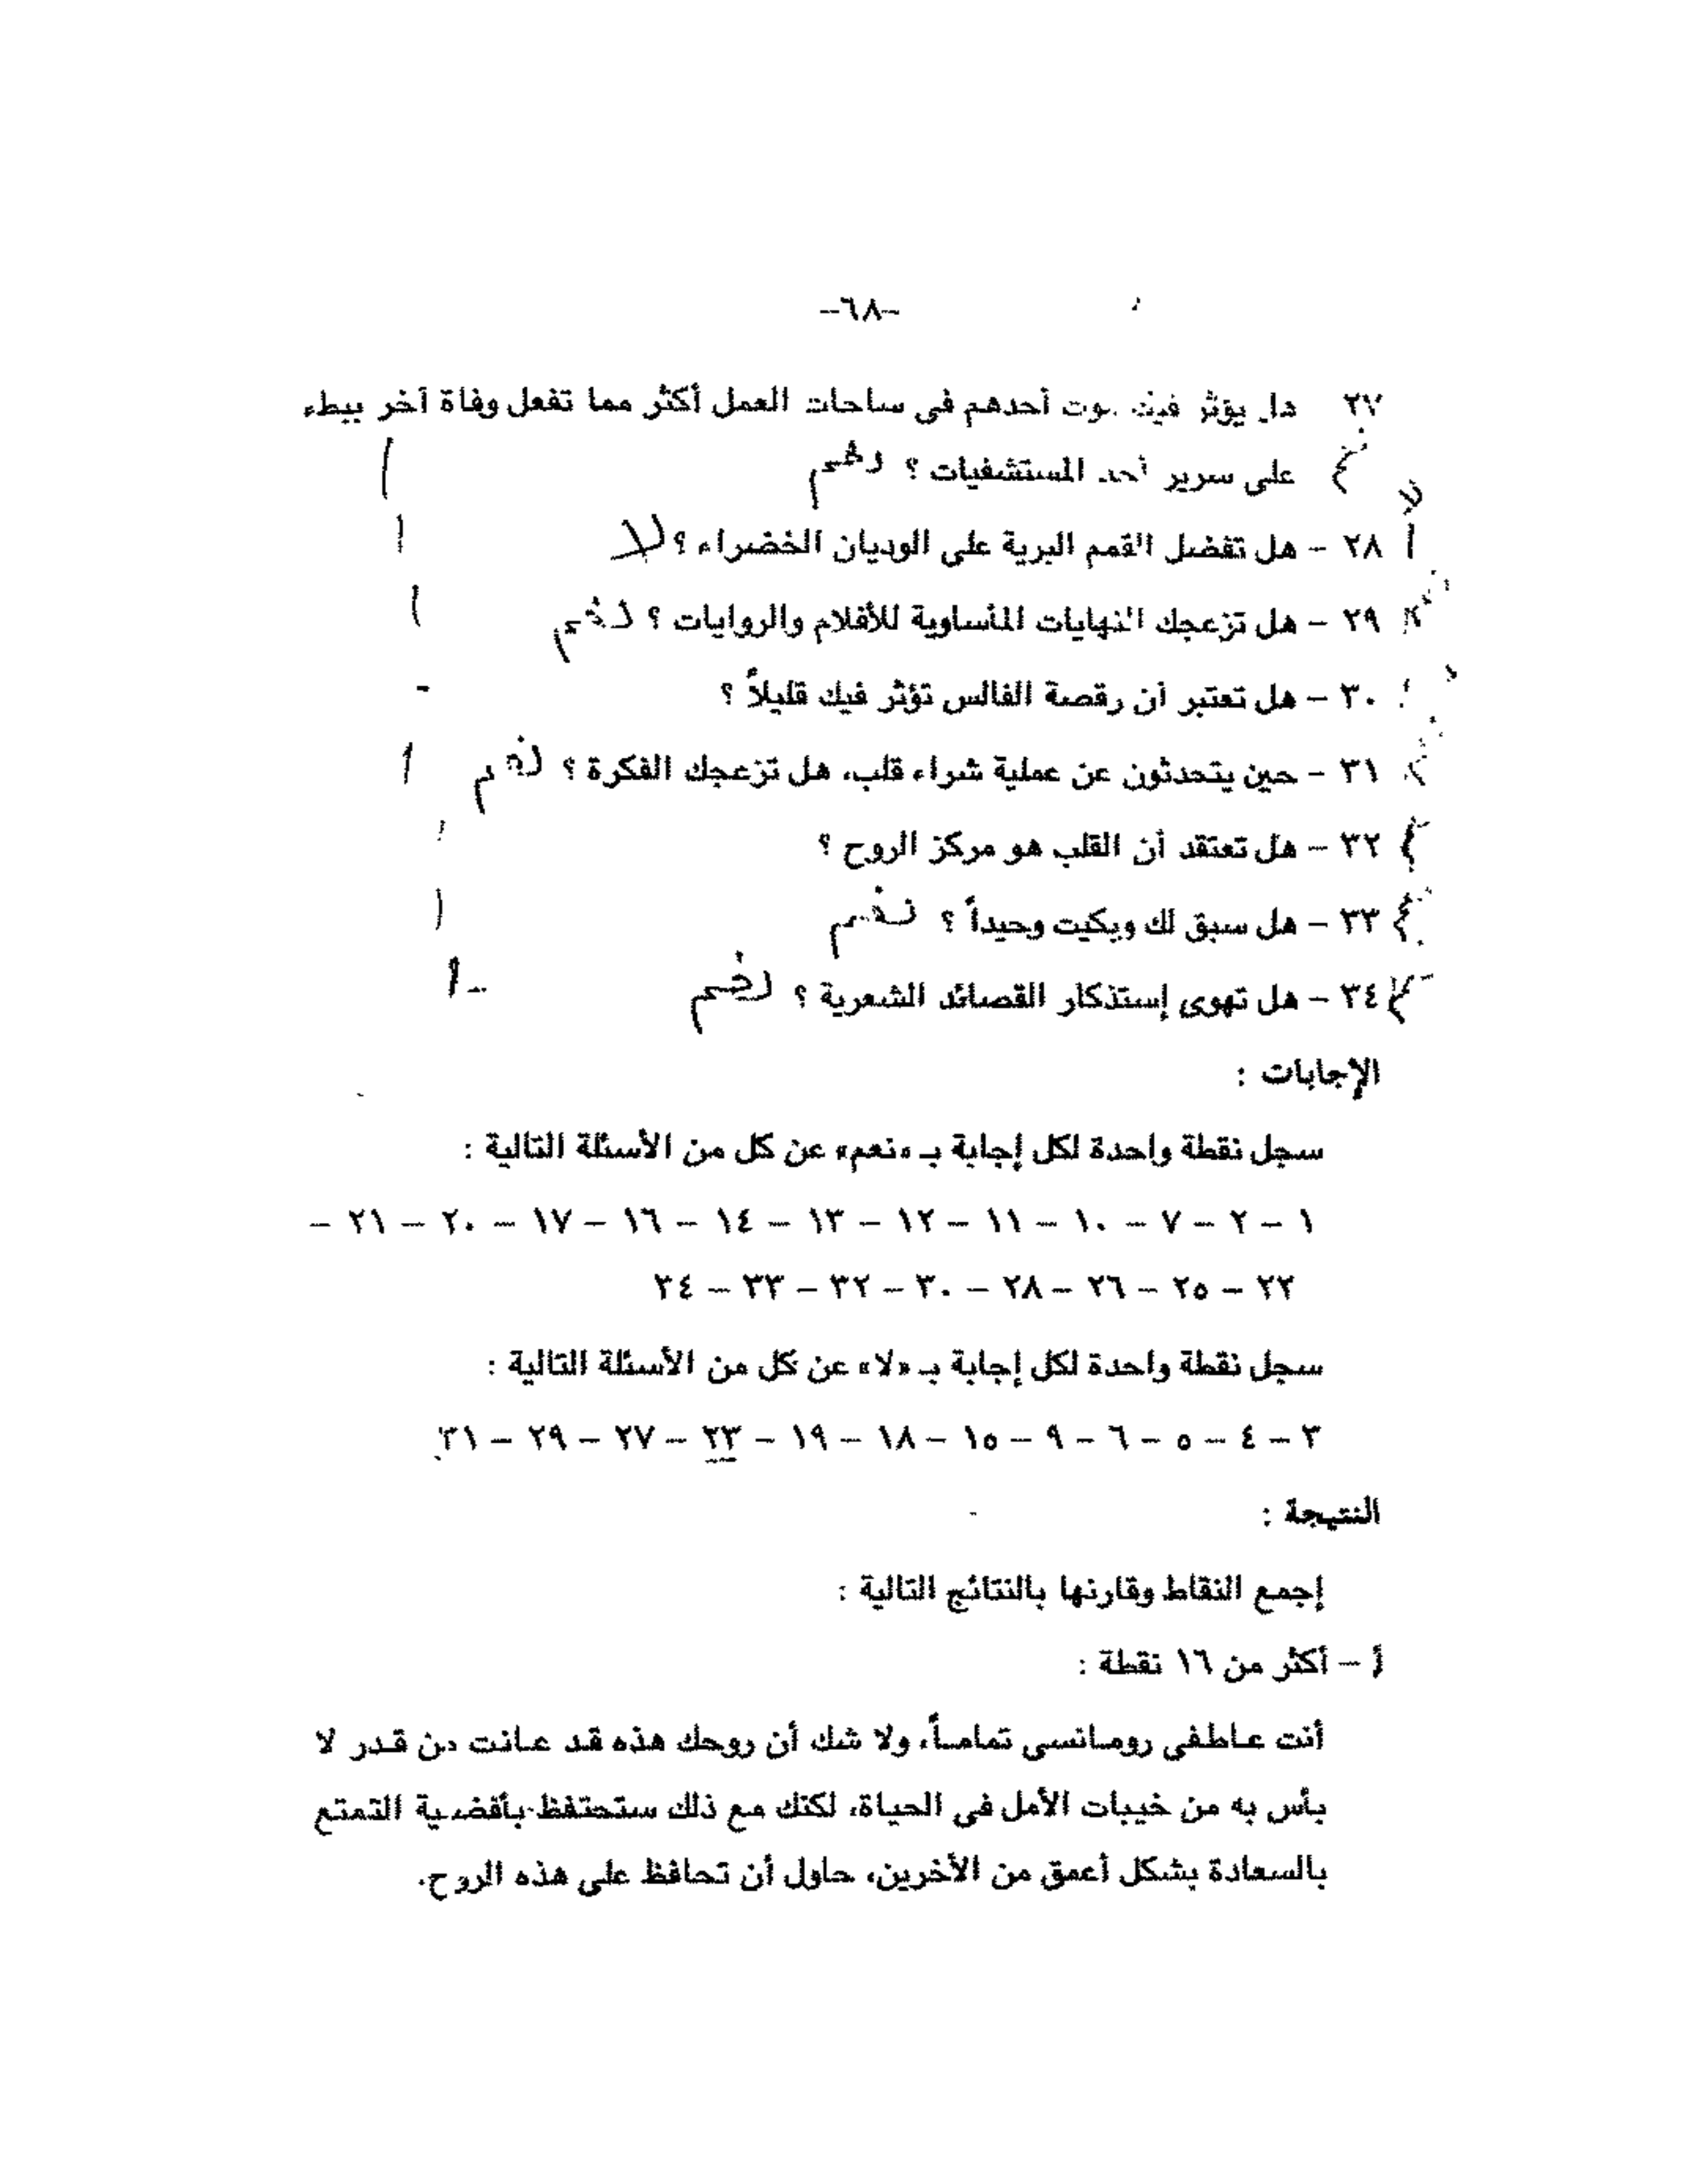 -٦٨-
٢٧ هل يؤثر فيك موت أحدهم في ساحات العمل أكثر مما تفعل وفاة آخر ببطء
على سرير أحد المستشفيات ؟ نعم
٢٨ - هل تفضل القمم البرية على الوديان الخضراء ؟ لا
٢٩ - هل تزعجك النهايات المأساوية للأفلام والروايات ؟ نعم
٣٠ - هل تعتبر أن رقصة الفالس تؤثر فيك قليلاً ؟
٣١ - حين يتحدثون عن عملية شراء قلب، هل تزعجك الفكرة ؟ نعم
٣٢ - هل تعتقد أن القلب هو مركز الروح ؟
٣٣ - هل سبق لك وبكيت وحيداً ؟ نعم
٣٤ - هل تهوى إستذكار القصائد الشعرية ؟ نعم
الإجابات :
سجل نقطة واحدة لكل إجابة بـ «نعم» عن كل من الأسئلة التالية :
١ - ٢ - ٧ - ١٠ - ١١ - ١٢ - ١٣ - ١٤ - ١٦ - ١٧ - ٢٠ - ٢١ -
٢٢ - ٢٥ - ٢٦ - ٢٨ - ٣٠ - ٣٢ - ٣٣ - ٣٤
سجل نقطة واحدة لكل إجابة بـ «لا» عن كل من الأسئلة التالية :
٣ - ٤ - ٥ - ٦ - ٩ - ١٥ - ١٨ - ١٩ - ٢٣ - ٢٧ - ٢٩ - ٣١
النتيجة :
إجمع النقاط وقارنها بالنتائج التالية :
أ - أكثر من ١٦ نقطة :
أنت عاطفى رومانسى تماماً، ولا شك أن روحك هذه قد عانت من قدر لا
بأس به من خيبات الأمل فى الحياة، لكنك مع ذلك ستحتفظ بأفضلية التمتع
بالسعادة بشكل أعمق من الأخرين، حاول أن تحافظ على هذه الروح.